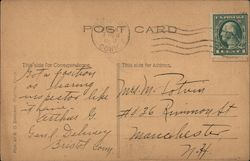 POST CARD
CONN
This side for Correspondence. This side for Address.
Got a position
as clearing
inspector like
them
Arthur G.
Gen'l Delivery
Bristol Conn
Mrs M. Potvin
#136 Rimmon St
Manchester
N.H.